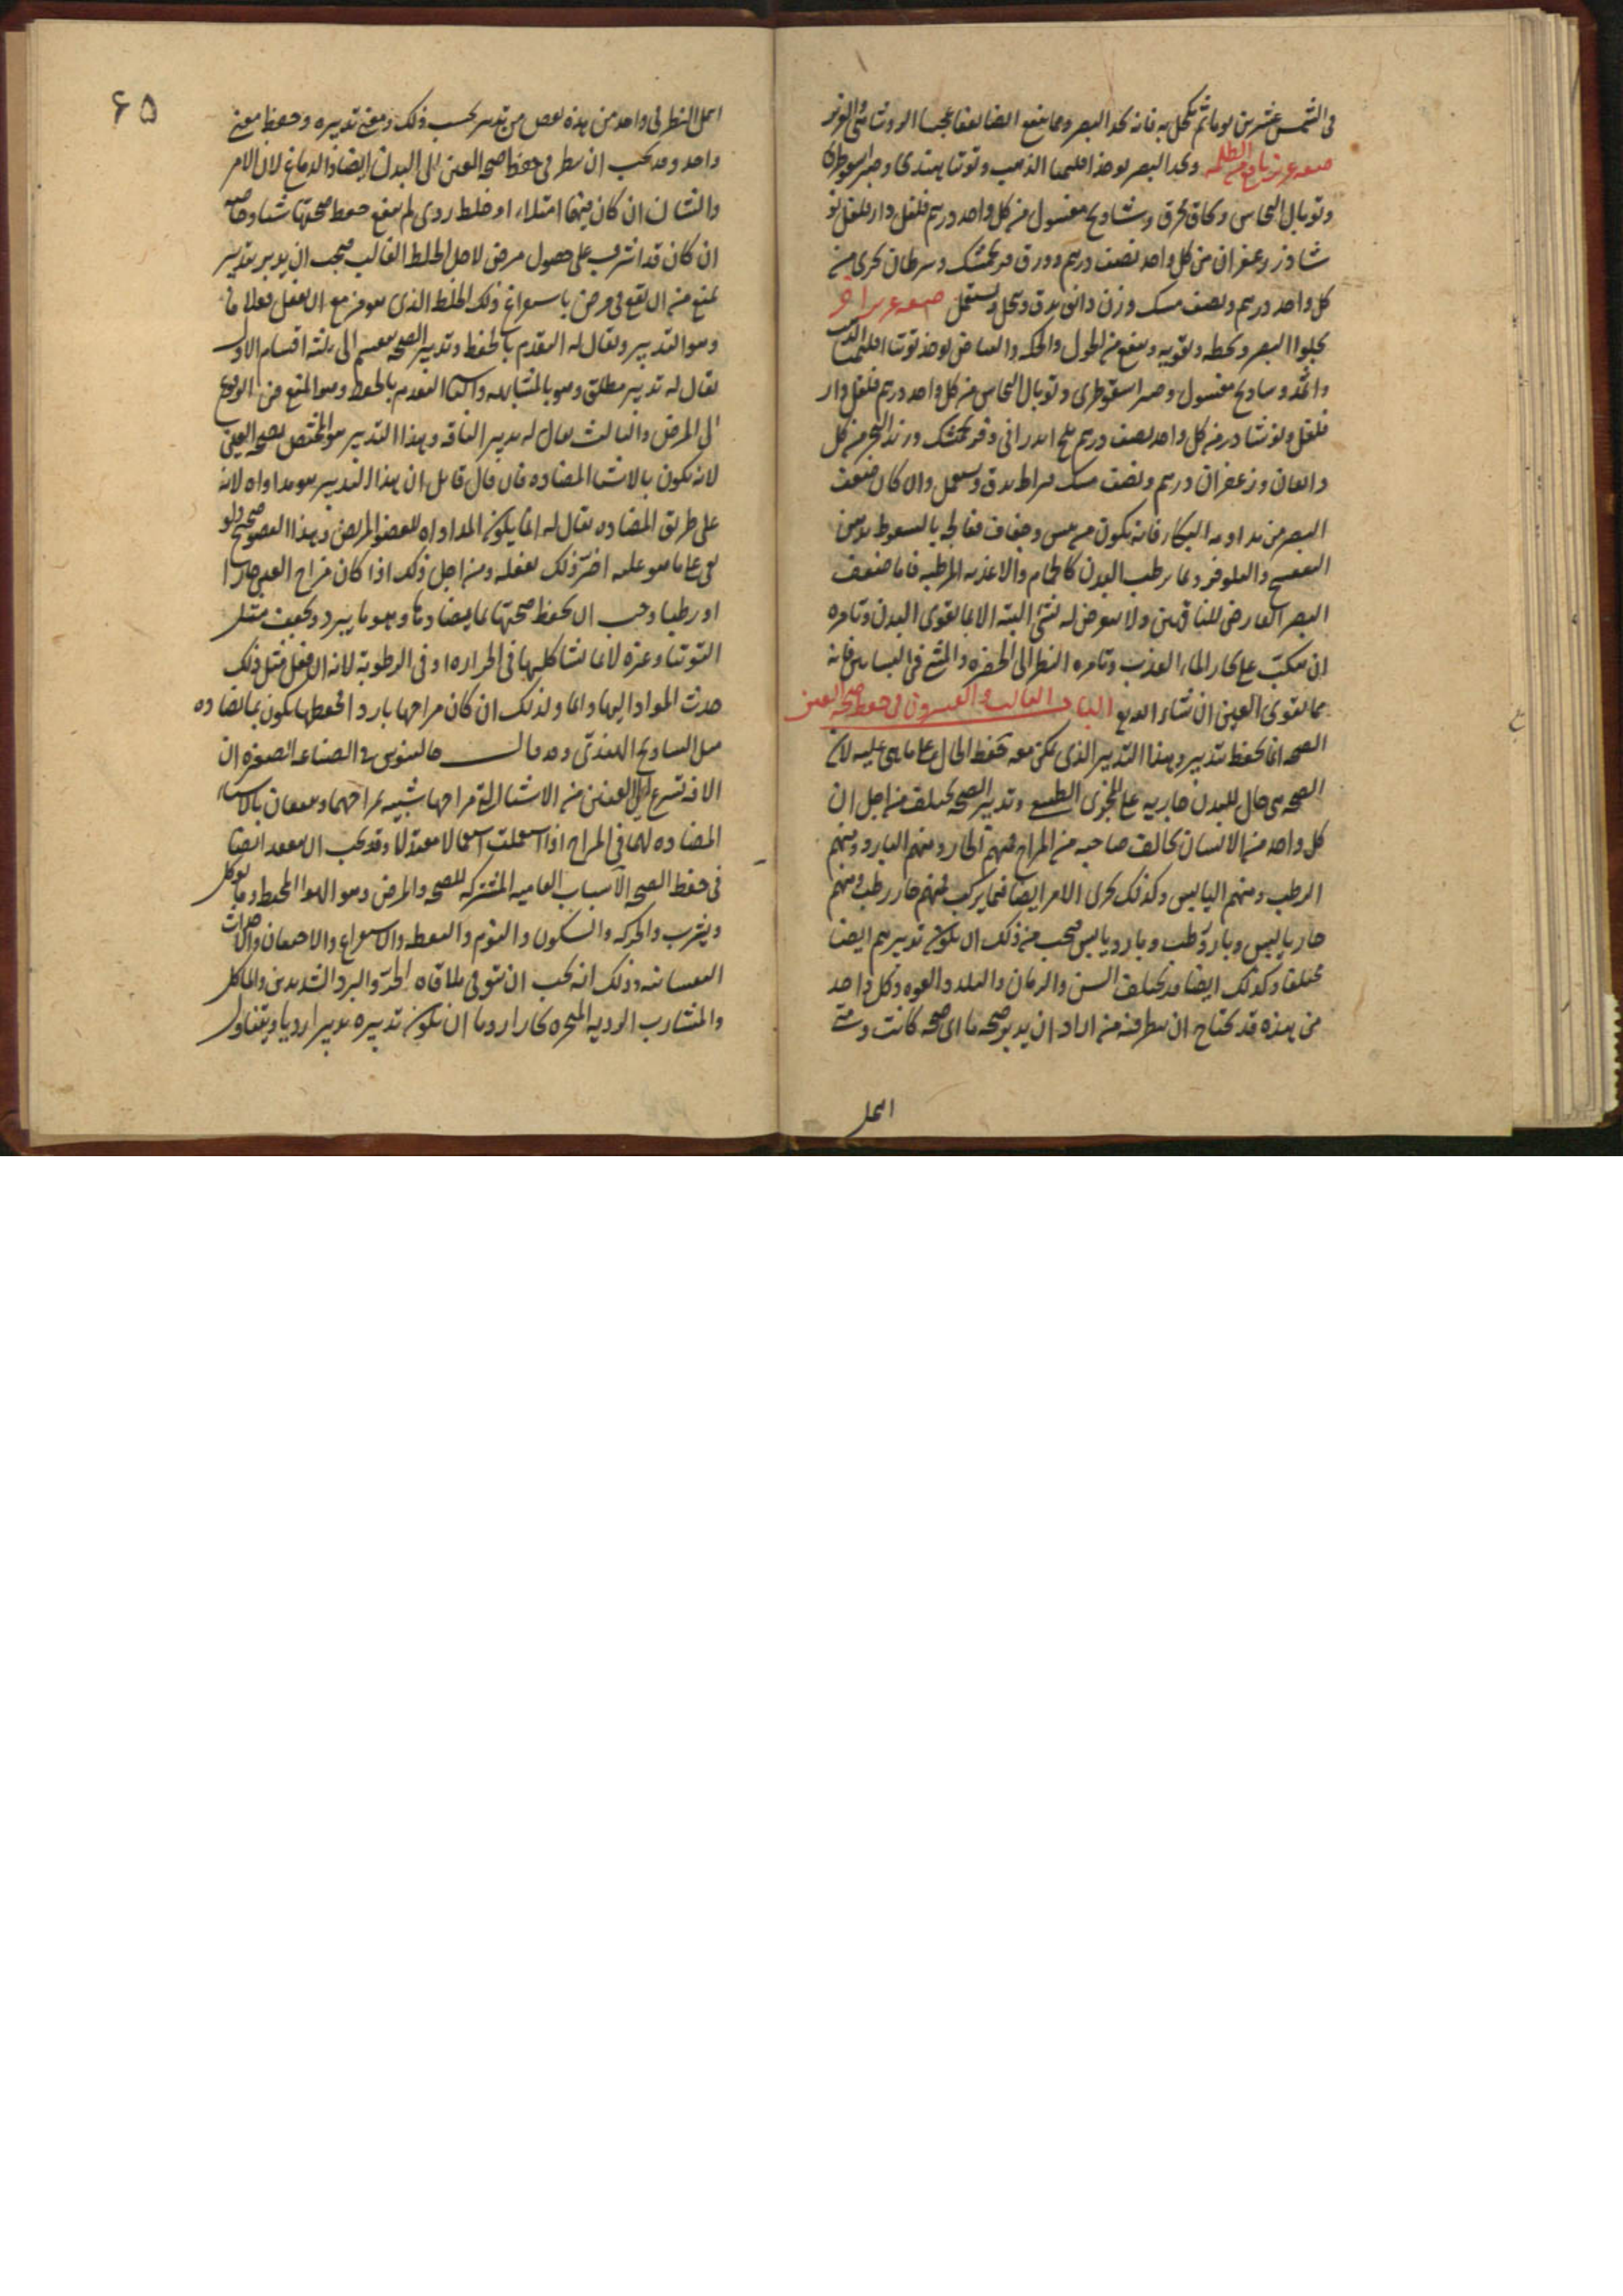 في الشمس عشرين يوما ثم يكحل به فانه يحد البصر ومما ينفع ايضا نفعا عجيبا الروشنائي
صفه عزيز نافع من الظلمه ويحد البصر يوخذ اقليميا الذهب وتوتيا هندي وصبر اسقوطري
وتوبال النحاس ونحاس محرق وشادنج مغسول من كل واحد درهم فلفل دار فلفل
وزعفران من كل واحد نصف درهم وورق فرنجمشك وسرطان بحري من
كل واحد درهم ونصف مسك وزن دانق يدق وينخل ويستعمل صفه عزيز اخر
يجلوا البصر ويحفظه ويقويه وينفع من الحول والحكه والبياض يوخذ توتيا اقليميا الذهب
واثمد وساذج مغسول وصبر اسقوطري وتوبال النحاس من كل واحد درهم فلفل دار
فلفل ونوشادر من كل واحد نصف درهم ملح اندراني وفرنجمشك وزبد البحر من كل
دانقان وزعفران درهم ونصف مسك قيراط يدق ويستعمل وان كان ضعف
البصر من مداومه البكاء فانه يكون من يبس وجفاف فعالجه بالسعوط بدهن
البنفسج والنيلوفر وبما يرطب البدن كالحمام والاغذيه المرطبه فاما ضعف
البصر العارض للناقهين ولا تتعرض له بشئ البته الا بما يقوي البدن وتامره
ان ينكب على بخار الماء العذب وتامره النظر الى الخضره والمشي في البساتين فانه
مما يقوي العين ان شاء الله تع الباب الثالث والعشرون في حفظ صحه العين
الصحه انما تحفظ بتدبير وهذا التدبير الذي يمكن معه حفظ الحال على ما هي عليه لان
الصحه هي حال للبدن جاريه على المجرى الطبيعي وتدبير الصحه يختلف من اجل ان
كل واحد من الانسان يخالف صاحبه من المزاج فمنهم الحار ومنهم البارد ومنهم
الرطب ومنهم اليابس وكذلك يجري الامر ايضا فيما يركب فمنهم حار رطب ومنهم
حار يابس وبارد رطب وبارد يابس فيجب من ذلك ان يكون تدبيرهم ايضا
مختلفا وكذلك ايضا قد يختلف السن والزمان والبلد والقوه وكل واحد
من هذه قد يحتاج ان ينظر فيه من اراد ان يدبر صحه ما اي صحه كانت ومتى
اهمل
٦٥
اهمل النظر في واحد من هذه نقص من تدبيره بحسب ذلك ومعنى تدبيره وحفظ معنى
واحد وقد يجب ان ينظر في حفظ صحه العين الى البدن ايضا والدماغ لان الامر
والشان ان كان فيهما امتلاء او خلط ردي لم ينفع حفظ صحتها شيئا وخاصه
ان كان قد اشرف على حصول مرض لاجل الخلط الغالب فيجب ان يدبر بتدبير
يمنع من ان يقع في مرض باستفراغ ذلك الخلط الذي هو مزمع ان يفعل فعلا ما
وهو التدبير ويقال له التقدم بالحفظ وتدبير الصحه ينقسم الى ثلثه اقسام الاول
يقال له تدبير مطلق وهو بالمشابهه والثاني التقدم بالحفظ وهو المنع من الوقوع
الى المرض والثالث يقال له تدبير الناقه وهذا التدبير هو المختص بصحه العين
لانه يكون بالاشيا المضاده فان قال قائل ان هذا التدبير هو مداواه لانه
على طريق المضاده يقال له انما يكون المداواه للعضو المريض وهذا العضو صحيح ولو
بقي على ما هو عليه اضر ذلك بفعله ومن اجل ذلك اذا كان مزاج العين حارا
او رطبا وجب ان تحفظ صحتها بما يضادها وهو ما يبرد ويجفف مثل
التوتيا وغيره لا بما يشاكلها في الحراره او في الرطوبة لانه ان فعل مثل ذلك
حدث المواد اليها دائما ولذلك ان كان مزاجها بارد احفظها يكون بما يضاده
مثل الساذج الهندي وقد قال جالينوس في الصناعه الصغيره ان
الافه تسرع الى العينين من الاشيا التي مزاجها شبيه بمزاجهما وينتفعان بالاشياء
المضاده لهما في المزاج اذا استعملت استعمالا معتدلا وقد يجب ان يتفقد ايضا
في حفظ الصحه الاسباب العاميه المشتركه للصحه والمرض وهو الهوا المحيط وما يوكل
ويشرب والحركه والسكون والنوم واليقظه والاستفراغ والاحتقان والاحداث
النفسانيه وذلك انه يجب ان يتوقى ملاقاه الحر والبرد الشديدين والماكل
والمشارب الرديه المبخره بخارا رديا ان يكون تدبيره تدبيرا رديا ويتناول